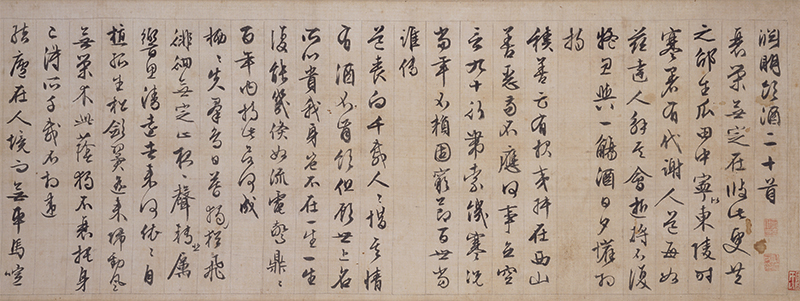 淵明飲酒二十首
衰榮無定在彼此更共
之邵生瓜田中寧似東陵時
寒暑有代謝人道每如
茲達人解其會逝將不復
疑忽與一觴酒日夕懽相
持
積善云有報夷叔在西山
善惡苟不應何事立空
言九十行帶索飢寒況
當年不賴固窮節百世當
誰傳
道喪向千載人〻惜其情
有酒不肯飲但顧世上名
所以貴我身豈不在一生一生
復能幾倏如流電驚鼎〻
百年內持此欲何成
栖〻失羣鳥日暮猶獨飛
徘徊無定止夜〻聲轉悲厲
響思清遠去來何依〻自
植孤生松斂翼遙來歸勁風
無榮木此蔭獨不衰託身
已得所千載不相違
結廬在人境而無車馬喧